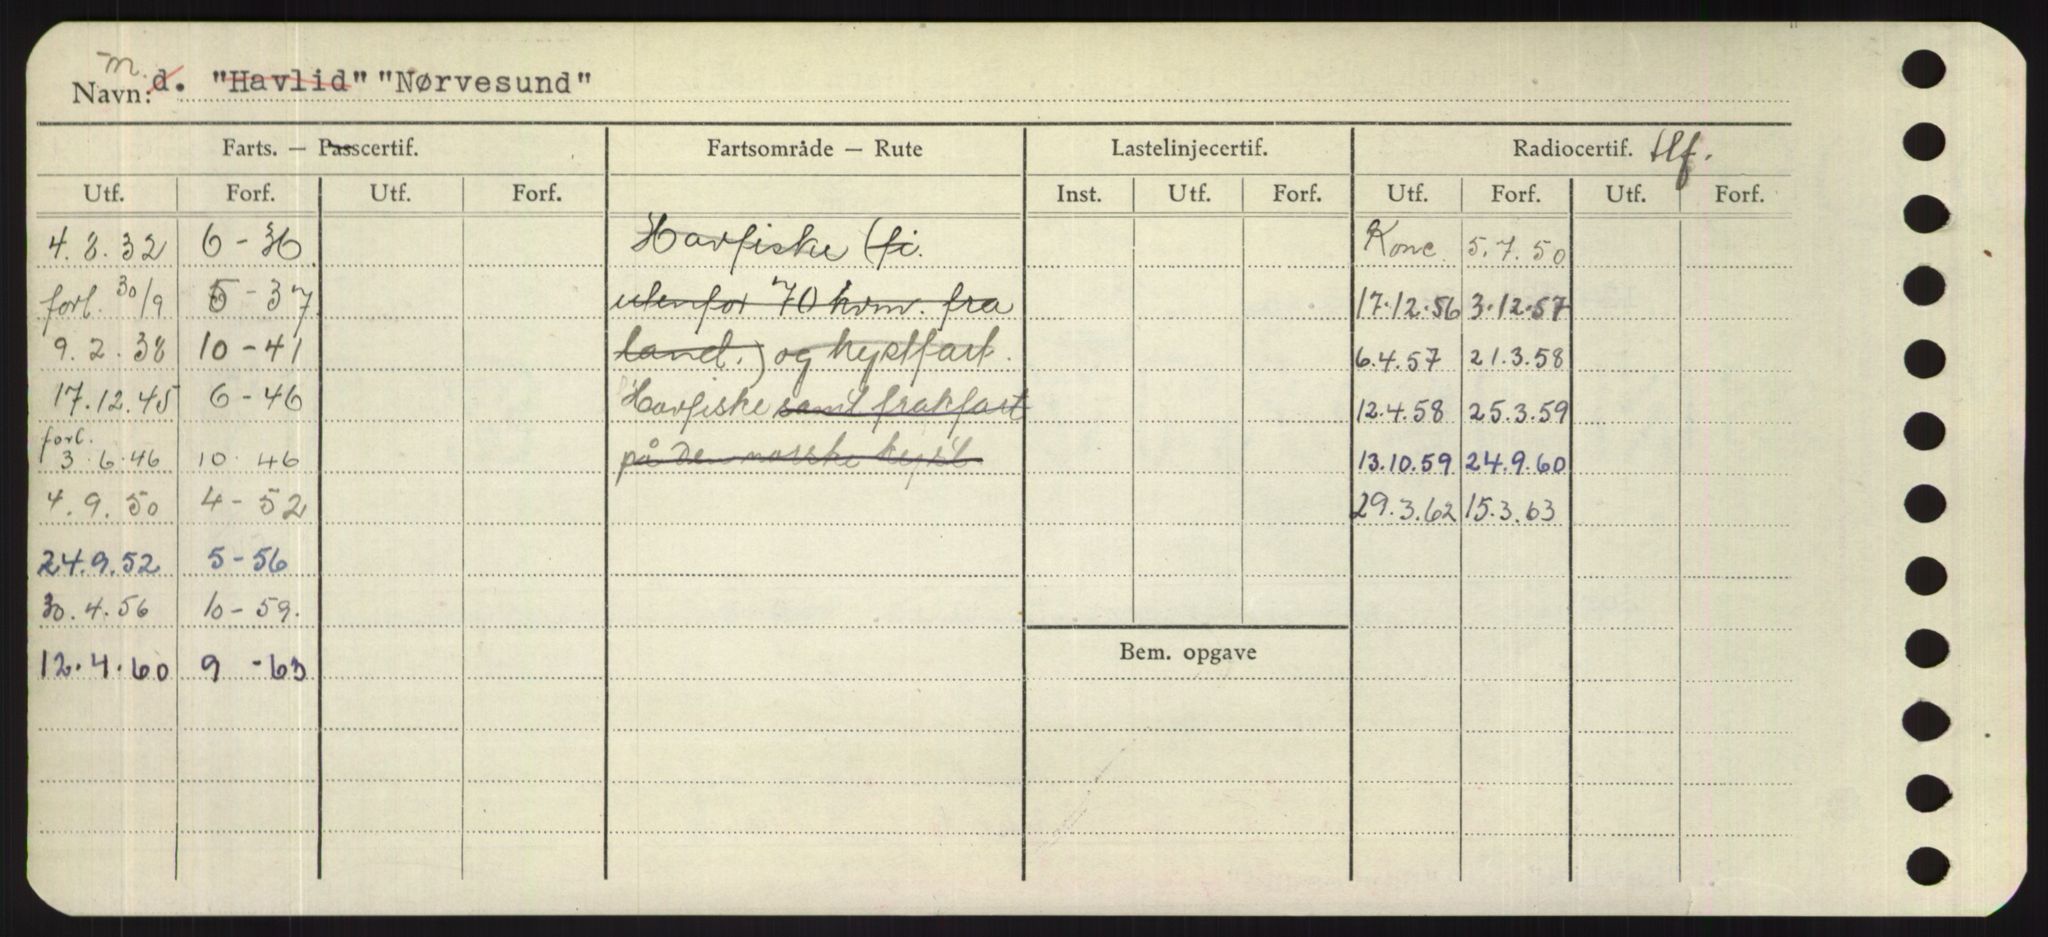 m.
Navn: d. "Havlid" "Nørvesund"
Farts. — Passcertif. Fartsområde — Rute Lastelinjecertif. Radiocertif. tlf.
Utf. Forf. Utf. Forf. Inst. Utf. Forf. Utf. Forf. Utf. Forf.
4.8.32 6-36 Havfiske (fi. Konc. 5.7.50
forl. 30/9 5-37 utenfor 70 kvm. fra 17.12.56 3.12.57
9.2.38 10-41 land.) og kystfart. 6.4.57 21.3.58
17.12.45 6-46 Havfiske samt fraktfart 12.4.58 25.3.59
forl.
3.6.46 10 46 på den norske kyst 13.10.59 24.9.60
4.9.50 4-52 29.3.62 15.3.63
24.9.52 5-56
30.4.56 10-59.
12.4.60 9-63
Bem. opgave